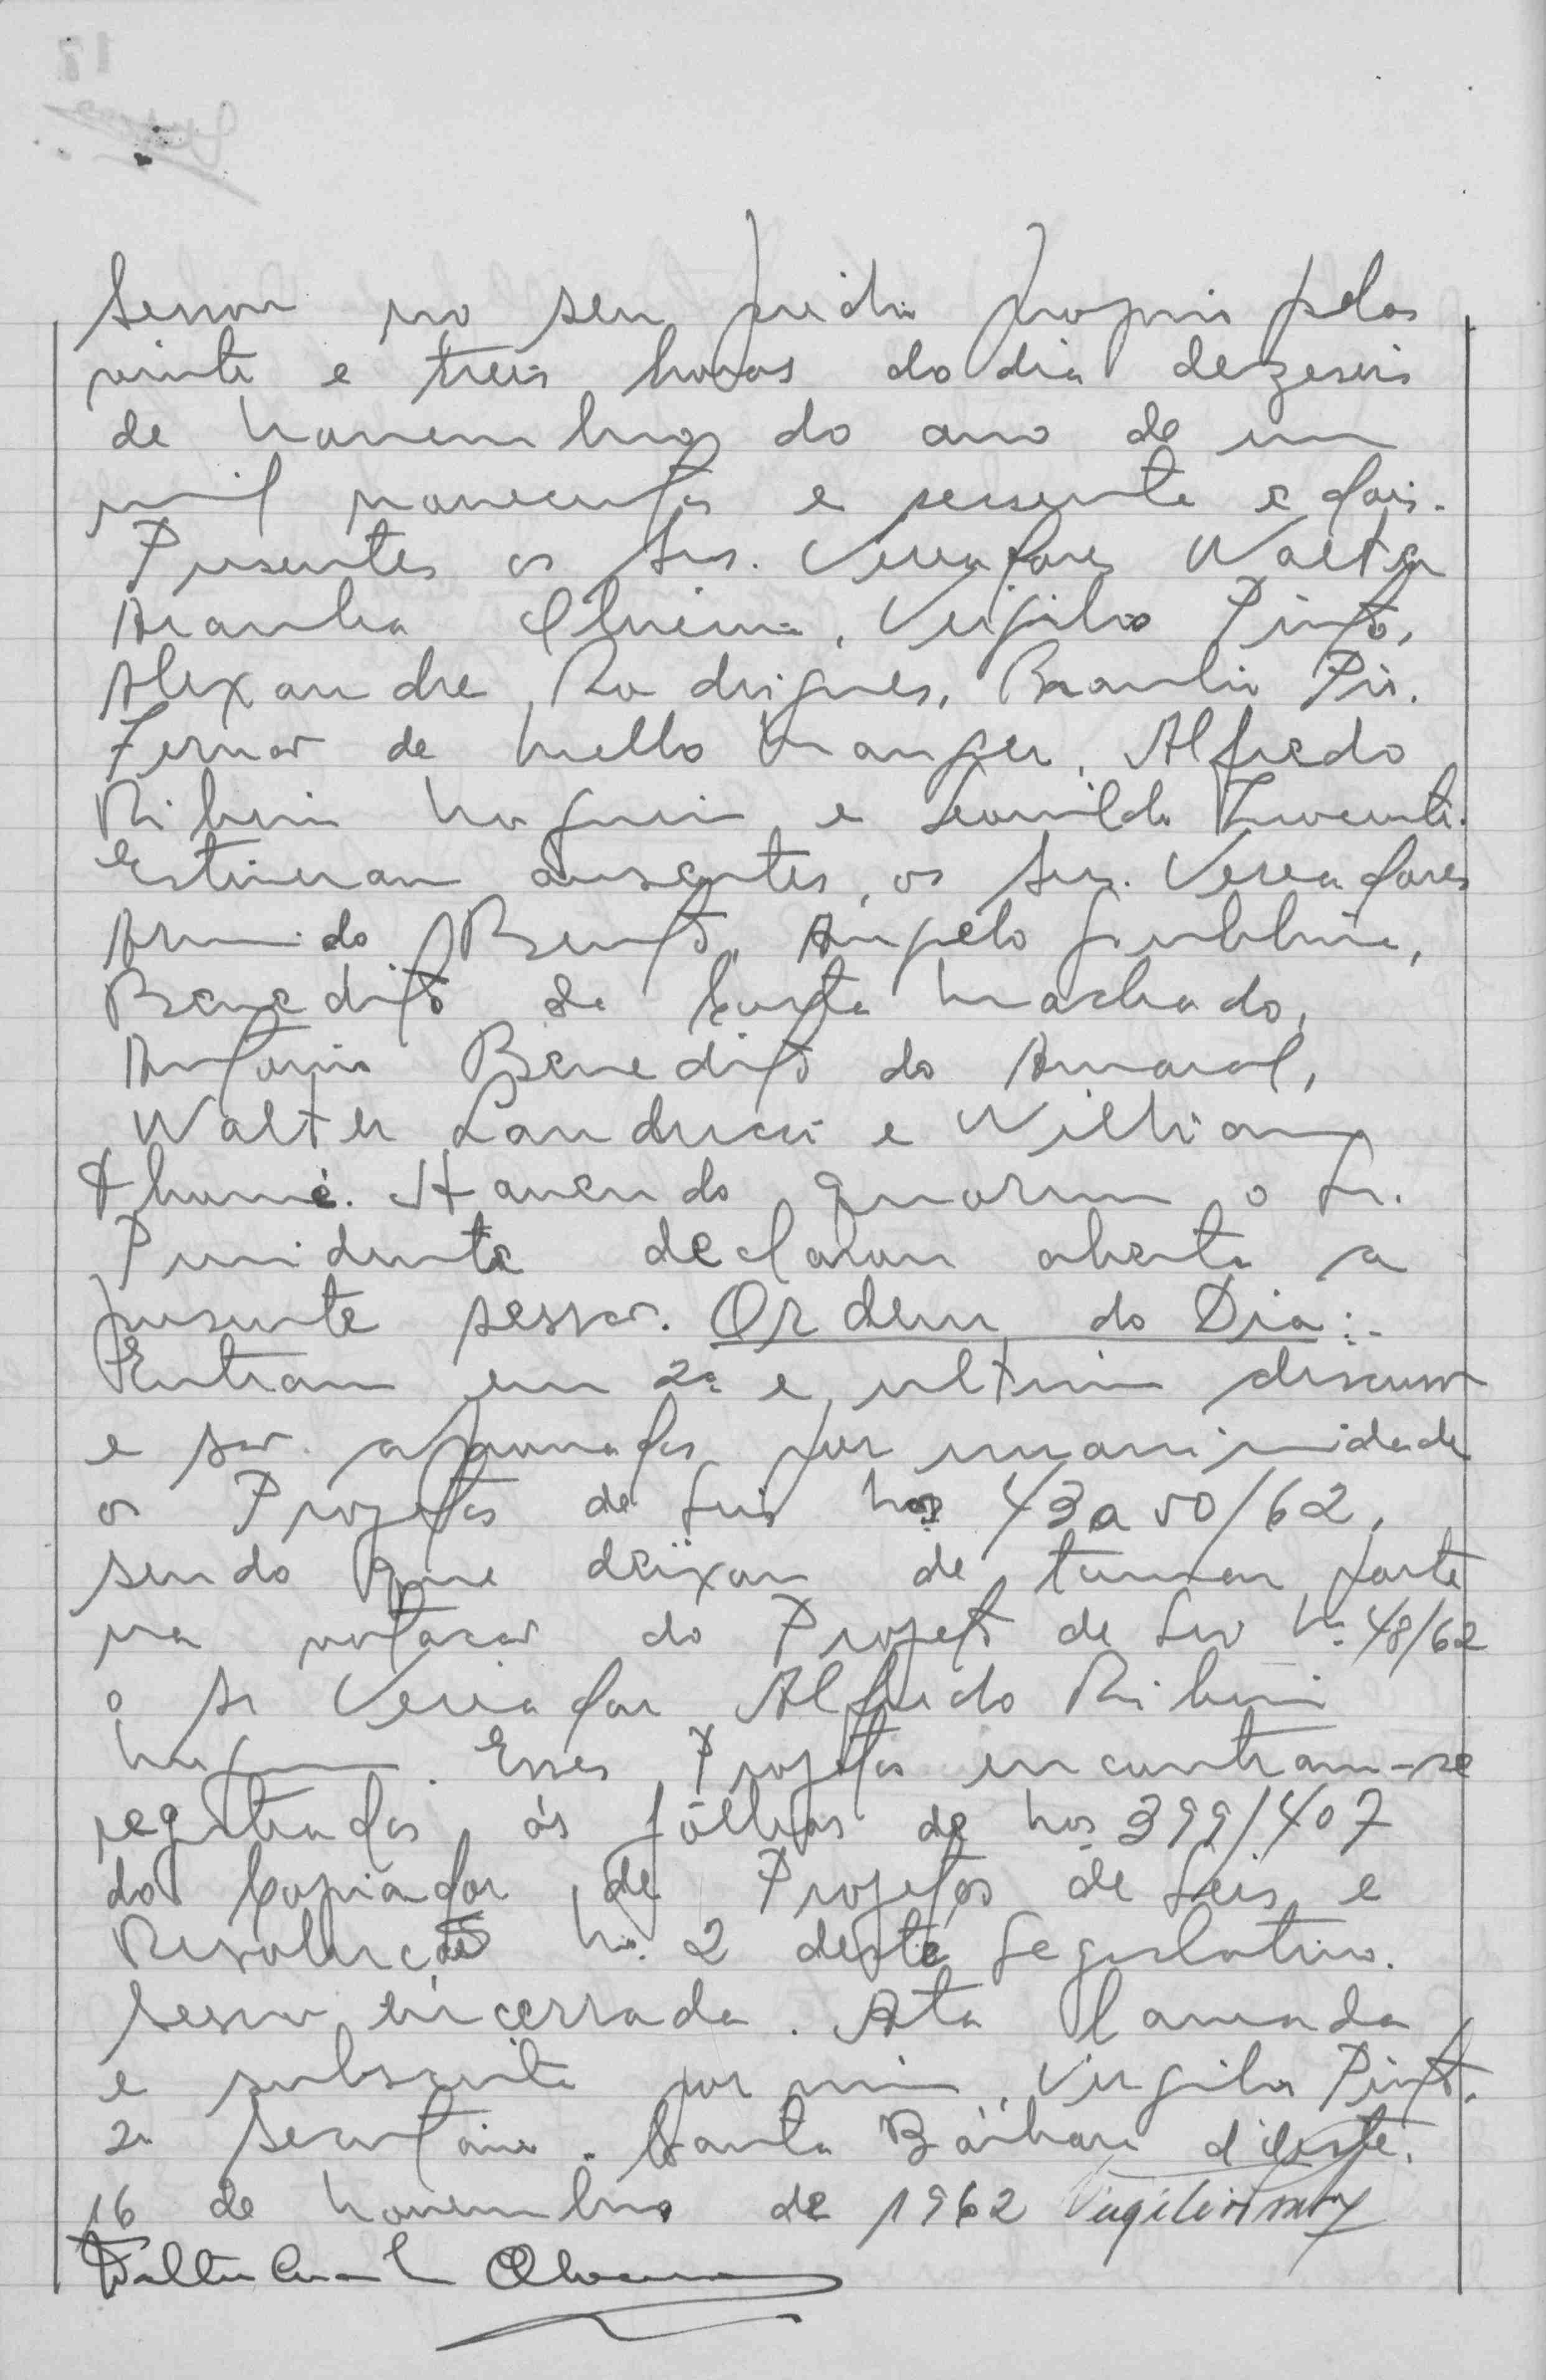 Sessão no seu predio proprio pelas
vinte e treis horas do dia dezeseis
de novembro do ano de um
mil novecentos e sessenta e dois.
Presentes os Srs. Vereadores Walter
Aranha Oliveira, Virgilio Pinto,
Alexandre Rodrigues, Braulio Pio.
Fernão de Mello Manger, Alfredo
Ribeiro Nogueira e Leonildo Inocenti.
Estiveram ausentes, os Srs. Vereadores
Armindo Bento, Angelo Giubbina,
Benedito da Costa Machado,
Antonio Benedito do Amaral,
Walter Landucci e William
Thomé. Havendo quorum o Sr.
Presidente declarou aberta a
presente sessão. Ordem do Dia:-
Entram em 2ª e ultima discussão
e são aprovados por unanimidade
os Projetos de Leis nos 43 a 50/62,
sendo que deixou de tomar parte
na votação do Projeto de Lei nº 48/62
o Sr Vereador Alfredo Ribeiro
Nogueira. Esses Projetos encontram-se
registrados ás fôlhas de nos 399/407
do Copiador de Projetos de Leis e
Resoluções nº. 2 deste Legislativo.
Sessão encerrada. Ata lavrada
e subscrita por mim, Virgilio Pinto.
2º Secretario. Santa Bárbara d'Oeste.
16 de novembro de 1962
Walter Aranha Oliveira